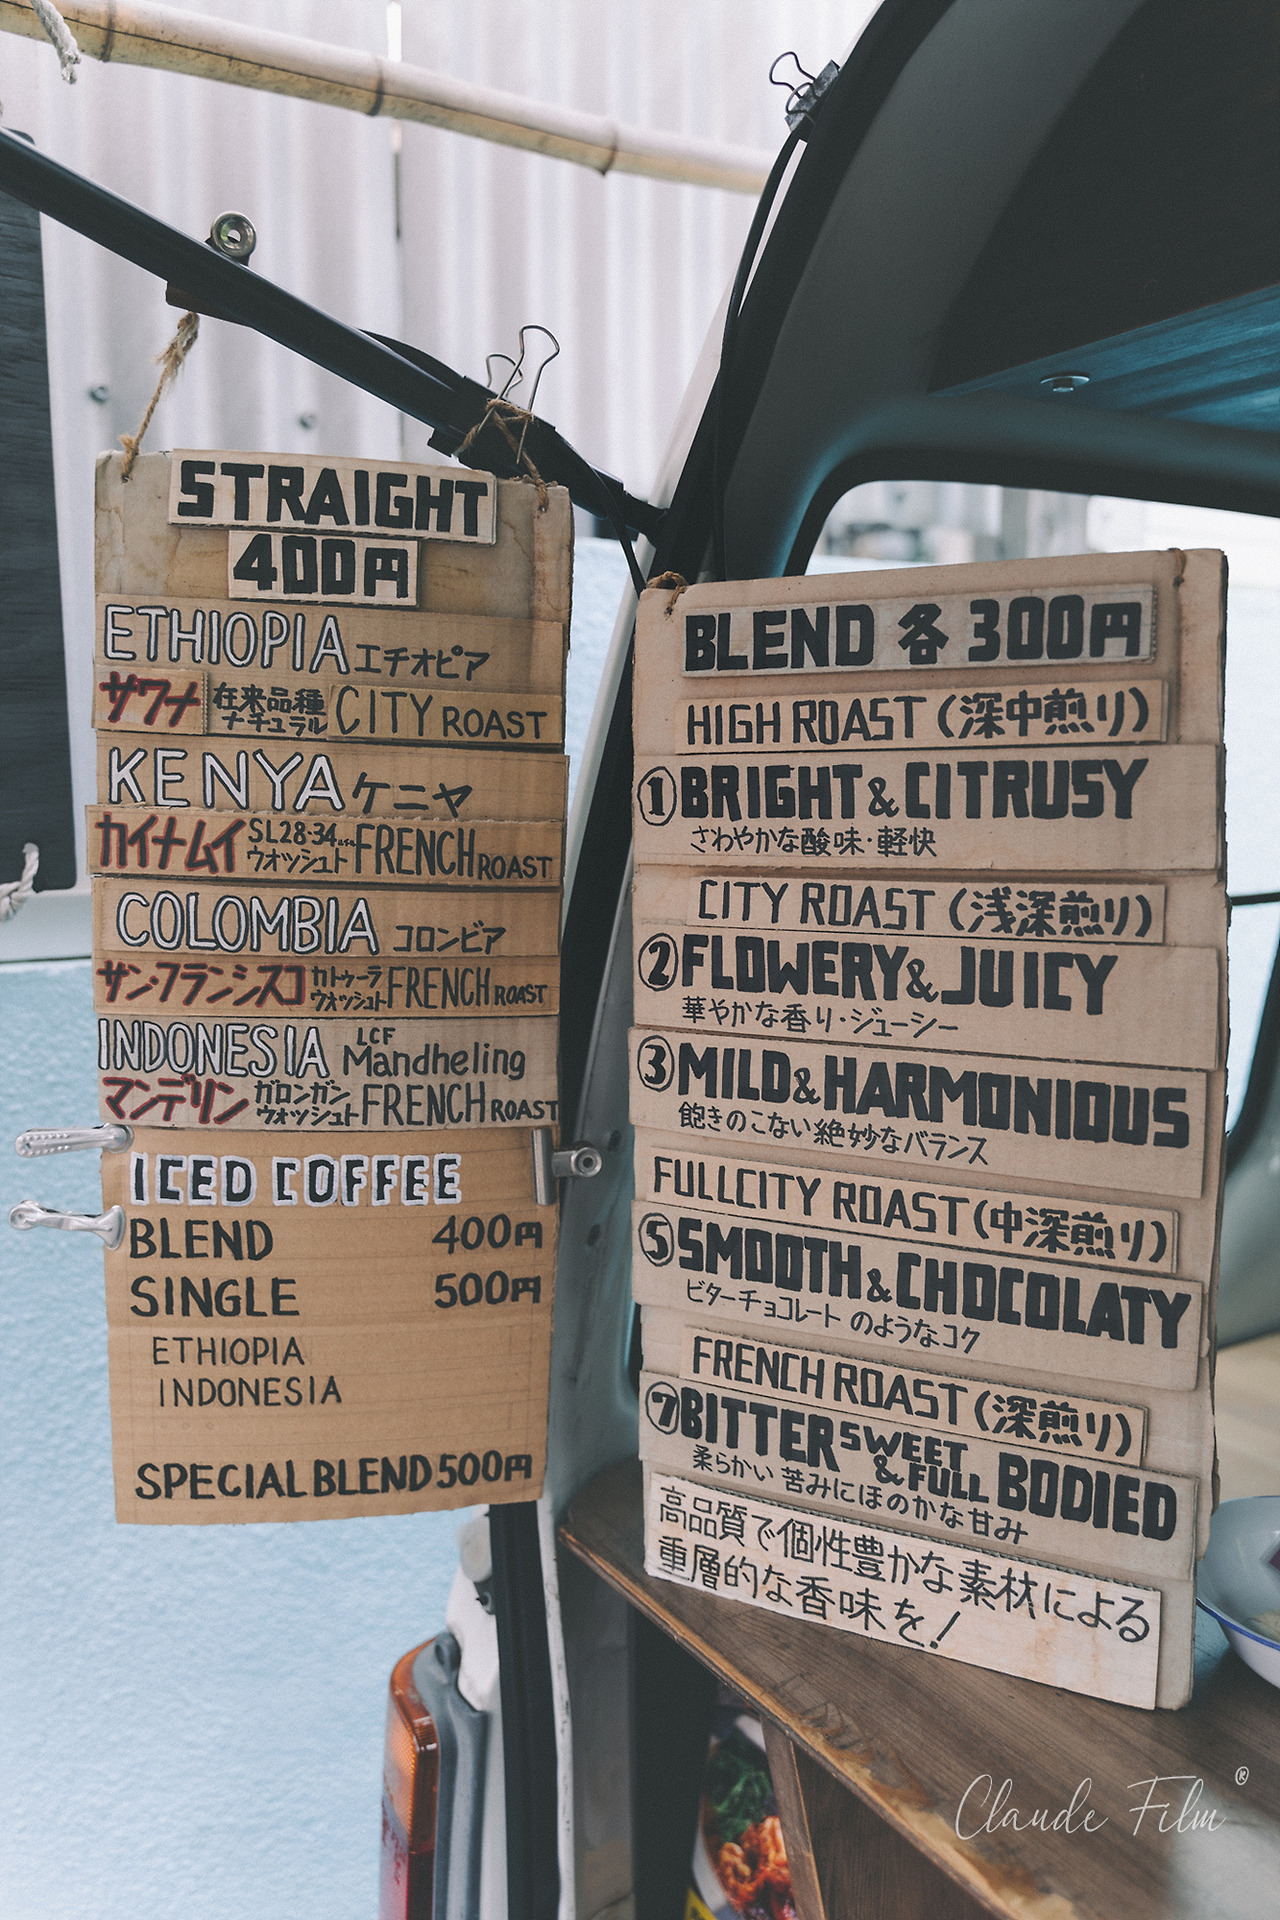 STRAIGHT
400円
ETHIOPIA エチオピア
サワナ 在来品種 ナチュラル CITY ROAST
KENYA ケニヤ
カイナムイ SL28・34 ウォッシュト FRENCH ROAST
COLOMBIA コロンビア
サン・フランシスコ カトゥーラ ウォッシュト FRENCH ROAST
INDONESIA LCF Mandheling
マンデリン ガロンガン ウォッシュト FRENCH ROAST
ICED COFFEE
BLEND 400円
SINGLE 500円
ETHIOPIA
INDONESIA
SPECIAL BLEND 500円
BLEND 各 300円
HIGH ROAST (深中煎り)
① BRIGHT & CITRUSY
さわやかな酸味・軽快
CITY ROAST (浅深煎り)
② FLOWERY & JUICY
華やかな香り・ジューシー
③ MILD & HARMONIOUS
飽きのこない絶妙なバランス
FULLCITY ROAST (中深煎り)
⑤ SMOOTH & CHOCOLATY
ビターチョコレートのようなコク
FRENCH ROAST (深煎り)
⑦ BITTERSWEET & FULL BODIED
柔らかい苦みにほのかな甘み
高品質で個性豊かな素材による
重層的な香味を!
Claude Film ®